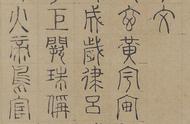 文
玄黃宇宙
成歲律呂
巨闕珠稱
火帝鳥官